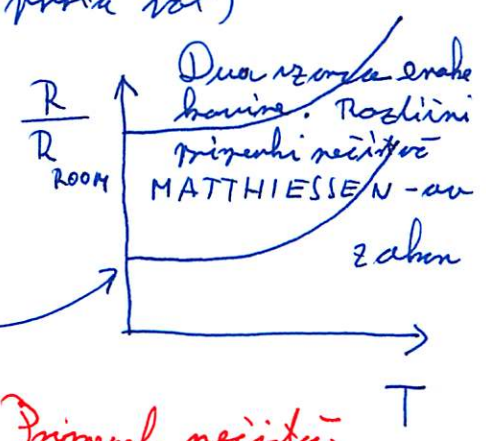 R
R ROOM
Dva vzorca enake
kovine. Različni
prispevki nečistoč
MATTHIESSEN-ov
zakon
T
nečistoč